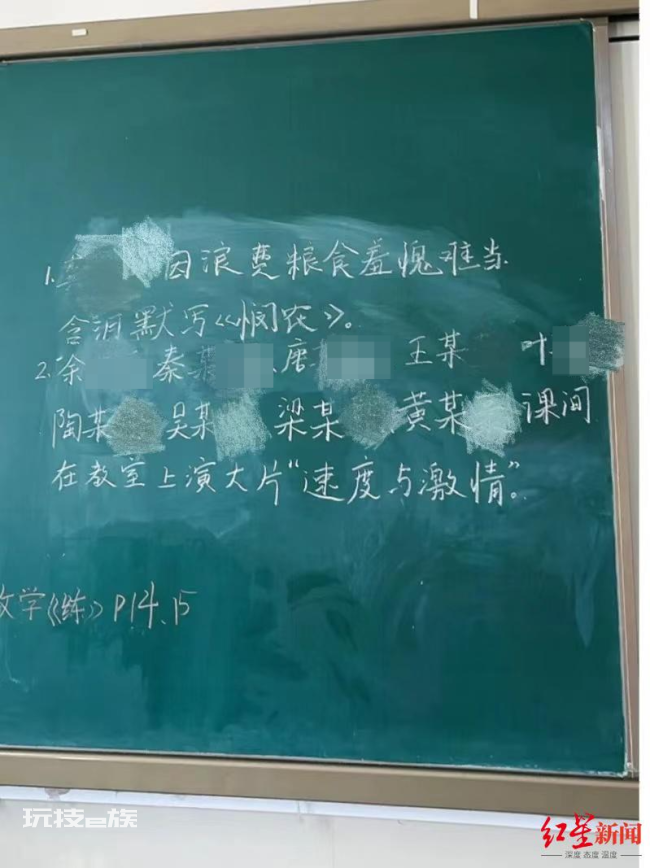 1. 因浪费粮食羞愧难当
含泪默写《悯农》。
2. 余 秦某 、唐 王某 叶
陶某 吴某 梁某 黄某 课间
在教室上演大片“速度与激情”。
数学《练》P14、15
玩技e族
红星新闻
深度 态度 温度